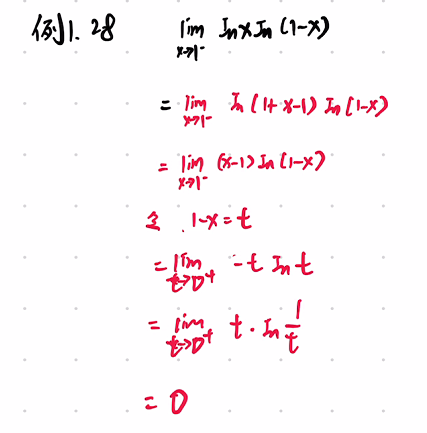 例1.28 lim x→1⁻ ln x ln (1-x)
= lim x→1⁻ ln (1+x-1) ln (1-x)
= lim x→1⁻ (x-1) ln (1-x)
令 1-x=t
= lim t→0⁺ -t ln t
= lim t→0⁺ t · ln 1/t
= 0